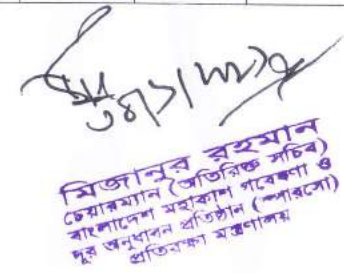 মিজানুর রহমান
চেয়ারম্যান (অতিরিক্ত সচিব)
বাংলাদেশ মহাকাশ গবেষণা ও
দূর অনুধাবন প্রতিষ্ঠান (স্পারসো)
প্রতিরক্ষা মন্ত্রণালয়